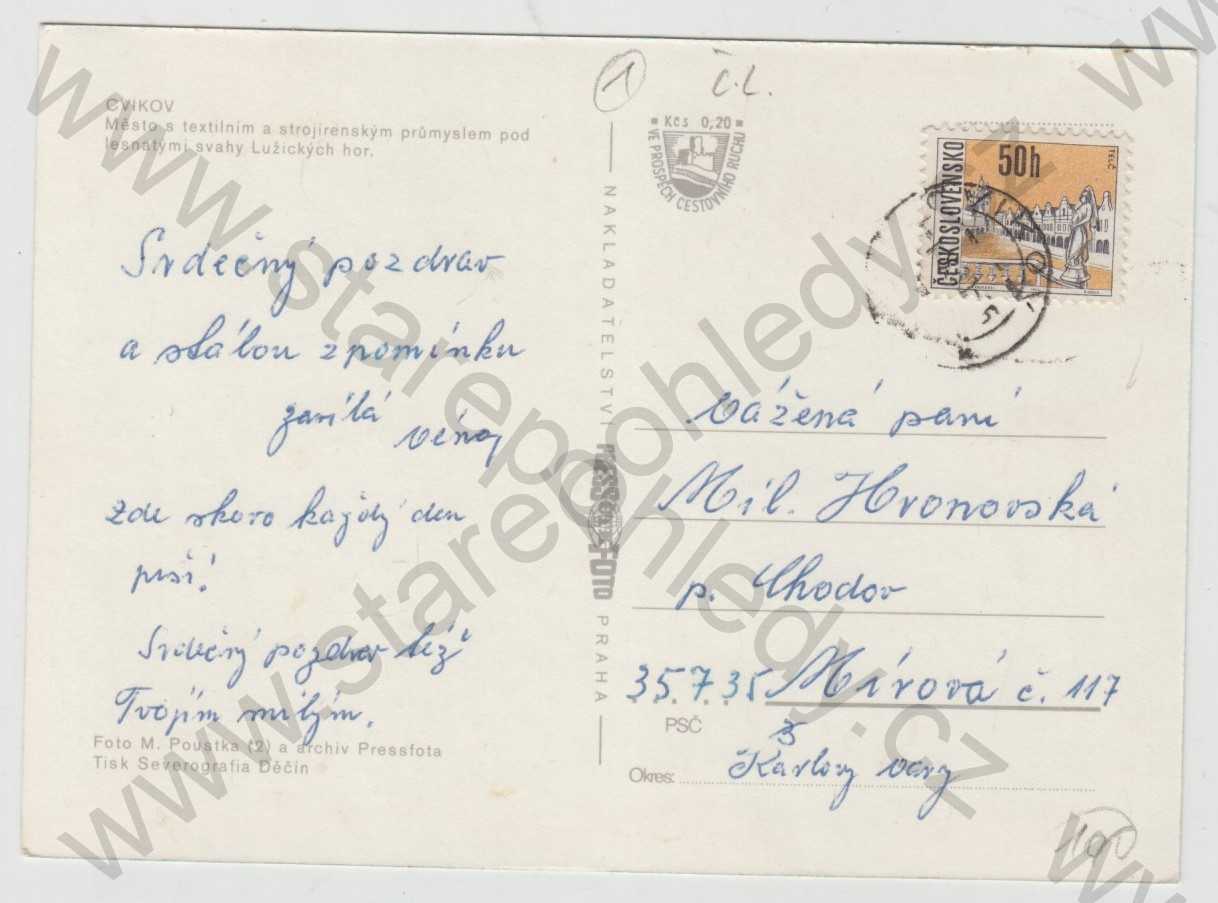 CVIKOV
Město s textilním a strojírenským průmyslem pod
lesnatými svahy Lužických hor.
Srdečný pozdrav
a stálou zpomínku
zasílá
Věna
Zde skoro každý den
prší!
Srdečný pozdrav též
Tvojím milým.
Foto M. Poustka (2) a archiv Pressfota
Tisk Severografia Děčín
NAKLADATELSTVÍ PRESSFOTO PRAHA
1
Č.L.
Kčs 0,20
VE PROSPĚCH CESTOVNÍHO RUCHU
ČESKOSLOVENSKO
50h
TELČ
Vážená paní
Mil. Hronovská
p. Chodov
35735 Mírová č. 117
PSČ
Okres: Karlovy Vary
100
www.starepohledy.cz
www.starepohledy.cz